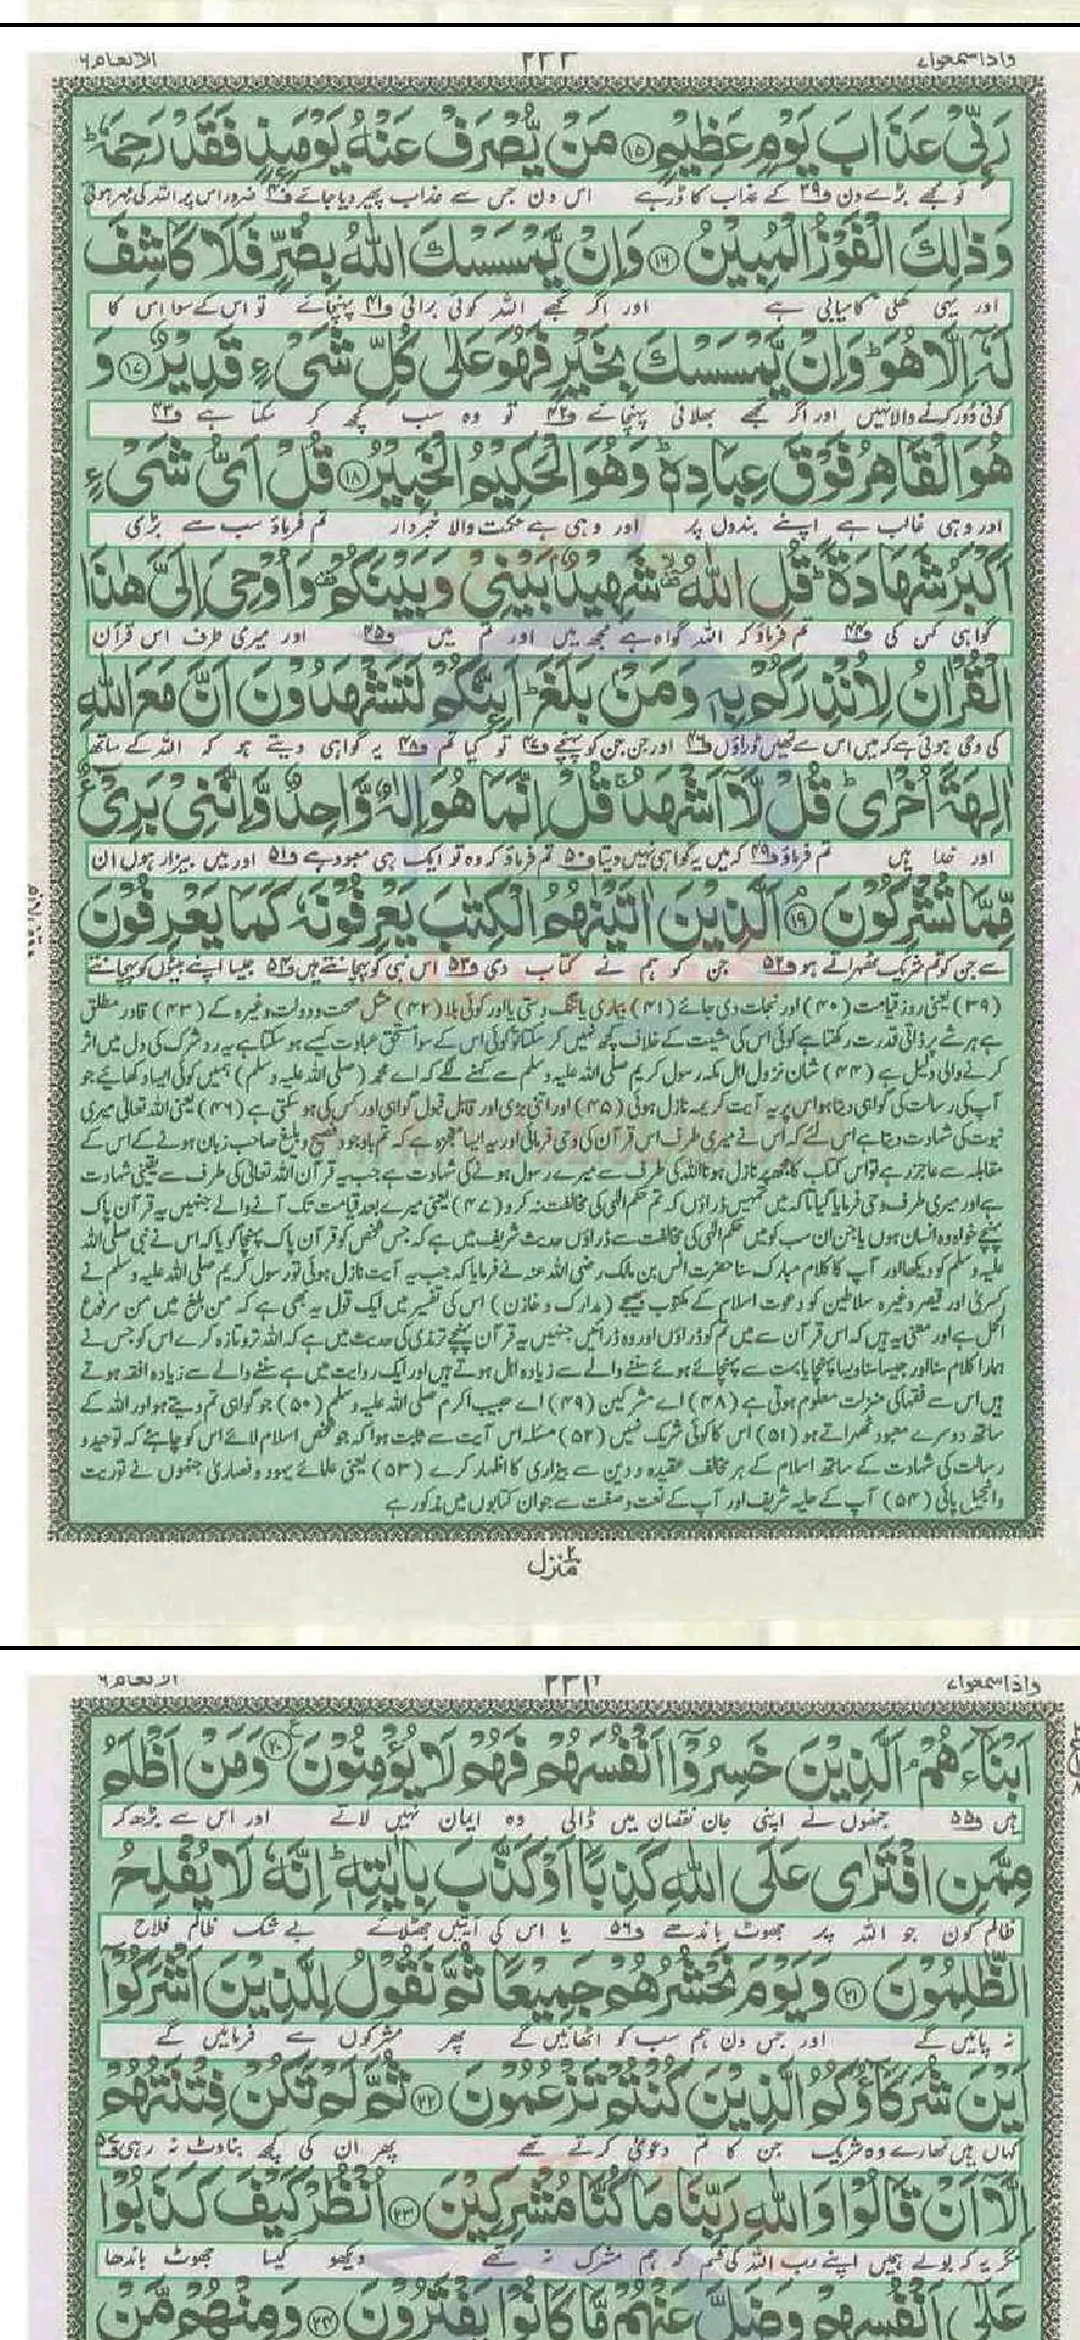 واذاسمعوا۷ ۲۳۳ الانعام۶
رَبِّیْ عَذَابَ یَوْمٍ عَظِیْمٍ ⑮ مَنْ یُّصْرَفْ عَنْهُ یَوْمَىٕذٍ فَقَدْ رَحِمَهٗؕ
تو مجھے بڑے دن ف۳۹ کے عذاب کا ڈر ہے اس دن جس سے عذاب پھیر دیا جائے ف۴۰ ضرور اس پر اللہ کی مہر ہوئی
وَ ذٰلِكَ الْفَوْزُ الْمُبِیْنُ ⑯ وَ اِنْ یَّمْسَسْكَ اللّٰهُ بِضُرٍّ فَلَا كَاشِفَ
اور یہی کھلی کامیابی ہے اور اگر تجھے اللہ کوئی برائی ف۴۱ پہنچائے تو اس کے سوا اس کا
لَهٗۤ اِلَّا هُوَؕ وَ اِنْ یَّمْسَسْكَ بِخَیْرٍ فَهُوَ عَلٰى كُلِّ شَیْءٍ قَدِیْرٌ ⑰ وَ
کوئی دور کرنے والا نہیں اور اگر تجھے بھلائی پہنچائے ف۴۲ تو وہ سب کچھ کر سکتا ہے ف۴۳
هُوَ الْقَاهِرُ فَوْقَ عِبَادِهٖؕ وَ هُوَ الْحَكِیْمُ الْخَبِیْرُ ⑱ قُلْ اَیُّ شَیْءٍ
اور وہی غالب ہے اپنے بندوں پر اور وہی ہے حکمت والا خبردار تم فرماؤ سب سے بڑی
اَكْبَرُ شَهَادَةًؕ قُلِ اللّٰهُ شَهِیْدٌۢ بَیْنِیْ وَ بَیْنَكُمْ وَ اُوْحِیَ اِلَیَّ هٰذَا
گواہی کس کی ف۴۴ تم فرماؤ کہ اللہ گواہ ہے مجھ میں اور تم میں ف۴۵ اور میری طرف اس قرآن
الْقُرْاٰنُ لِاُنْذِرَكُمْ بِهٖ وَ مَنْۢ بَلَغَؕ اَىٕنَّكُمْ لَتَشْهَدُوْنَ اَنَّ مَعَ اللّٰهِ
کی وحی ہوئی ہے کہ میں اس سے تمھیں ڈراؤں ف۴۶ اور جن جن کو پہنچے ف۴۷ تو کیا تم ف۴۸ یہ گواہی دیتے ہو کہ اللہ کے ساتھ
اٰلِهَةً اُخْرٰىؕ قُلْ لَّاۤ اَشْهَدُۚ قُلْ اِنَّمَا هُوَ اِلٰهٌ وَّاحِدٌ وَّ اِنَّنِیْ بَرِیْٓءٌ
اور خدا ہیں تم فرماؤ ف۴۹ کہ میں یہ گواہی نہیں دیتا ف۵۰ تم فرماؤ کہ وہ تو ایک ہی معبود ہے ف۵۱ اور میں بیزار ہوں ان
مِّمَّا تُشْرِكُوْنَ ⑲ اَلَّذِیْنَ اٰتَیْنٰهُمُ الْكِتٰبَ یَعْرِفُوْنَهٗ كَمَا یَعْرِفُوْنَ
سے جن کو تم شریک ٹھہراتے ہو ف۵۲ جن کو ہم نے کتاب دی ف۵۳ اس نبی کو پہچانتے ہیں ف۵۴ جیسا اپنے بیٹوں کو پہچانتے
(۳۹) یعنی روز قیامت (۴۰) اور نجات دی جائے (۴۱) بیماری یا تنگ دستی یا اور کوئی بلا (۴۲) مثل صحت و دولت وغیرہ کے (۴۳) قادر مطلق
ہے ہر شے پر ذاتی قدرت رکھتا ہے کوئی اس کی مشیت کے خلاف کچھ نہیں کر سکتا تو کوئی اس کے سوا مستحق عبادت کیسے ہو سکتا ہے یہ رد شرک کی دل میں اثر
کرنے والی دلیل ہے (۴۴) شان نزول اہل مکہ رسول کریم صلی اللہ علیہ وسلم سے کہنے لگے کہ اے محمد (صلی اللہ علیہ وسلم) ہمیں کوئی ایسا دکھائیے جو
آپ کی رسالت کی گواہی دیتا ہو اس پر یہ آیت کریمہ نازل ہوئی (۴۵) اور اتنی بڑی اور قابل قبول گواہی اور کس کی ہو سکتی ہے (۴۶) یعنی اللہ تعالیٰ میری
نبوت کی شہادت دیتا ہے اس لئے کہ اس نے میری طرف اس قرآن کی وحی فرمائی اور یہ ایسا معجزہ ہے کہ تم باوجود فصیح و بلیغ صاحب زبان ہونے کے اس کے
مقابلہ سے عاجز رہے تو اس کتاب کا مجھ پر نازل ہونا اللہ کی طرف سے میرے رسول ہونے کی شہادت ہے جب یہ قرآن اللہ تعالیٰ کی طرف سے یقینی شہادت
ہے اور میری طرف وحی فرمایا گیا تاکہ میں تمہیں ڈراؤں کہ تم حکم الٰہی کی مخالفت نہ کرو (۴۷) یعنی میرے بعد قیامت تک آنے والے جنہیں یہ قرآن پاک
پہنچے خواہ وہ انسان ہوں یا جن ان سب کو میں حکم الٰہی کی مخالفت سے ڈراؤں حدیث شریف میں ہے کہ جس شخص کو قرآن پاک پہنچا گویا کہ اس نے نبی صلی اللہ
علیہ وسلم کو دیکھا اور آپ کا کلام مبارک سنا حضرت انس بن مالک رضی اللہ عنہ نے فرمایا کہ جب یہ آیت نازل ہوئی تو رسول کریم صلی اللہ علیہ وسلم نے
کسریٰ اور قیصر وغیرہ سلاطین کو دعوت اسلام کے مکتوب بھیجے (مدارک و خازن) اس کی تفسیر میں ایک قول یہ بھی ہے کہ من بلغ میں من مرفوع
المحل ہے اور معنی یہ ہیں کہ اس قرآن سے میں تم کو ڈراؤں اور وہ ڈرائیں جنہیں یہ قرآن پہنچے ترمذی کی حدیث میں ہے کہ اللہ تروتازہ کرے اس کو جس نے
ہمارا کلام سنا اور جیسا سنا ویسا پہنچایا بہت سے پہنچائے ہوئے سننے والے سے زیادہ اہل ہوتے ہیں اور ایک روایت میں ہے سننے والے سے زیادہ افقہ ہوتے
ہیں اس سے فقہا کی منزلت معلوم ہوتی ہے (۴۸) اے مشرکین (۴۹) اے حبیب اکرم صلی اللہ علیہ وسلم (۵۰) جو گواہی تم دیتے ہو اور اللہ کے
ساتھ دوسرے معبود ٹھہراتے ہو (۵۱) اس کا کوئی شریک نہیں (۵۲) مسئلہ اس آیت سے ثابت ہوا کہ جو شخص اسلام لائے اس کو چاہئے کہ توحید و
رسالت کی شہادت کے ساتھ اسلام کے ہر مخالف عقیدہ و دین سے بیزاری کا اظہار کرے (۵۳) یعنی علمائے یہود و نصاریٰ جنھوں نے توریت
و انجیل پائی (۵۴) آپ کے حلیہ شریف اور آپ کے نعت و صفت سے جو ان کتابوں میں مذکور ہے
منزل۲
واذاسمعوا۷ ۲۳۴ الانعام۶
اَبْنَآءَهُمْۘ اَلَّذِیْنَ خَسِرُوْۤا اَنْفُسَهُمْ فَهُمْ لَا یُؤْمِنُوْنَ ⑳ وَ مَنْ اَظْلَمُ
ہیں ف۵۵ جنھوں نے اپنی جان نقصان میں ڈالی وہ ایمان نہیں لاتے اور اس سے بڑھ کر
مِمَّنِ افْتَرٰى عَلَى اللّٰهِ كَذِبًا اَوْ كَذَّبَ بِاٰیٰتِهٖؕ اِنَّهٗ لَا یُفْلِحُ
ظالم کون جو اللہ پر جھوٹ باندھے ف۵۶ یا اس کی آیتیں جھٹلائے بے شک ظالم فلاح
الظّٰلِمُوْنَ ㉑ وَ یَوْمَ نَحْشُرُهُمْ جَمِیْعًا ثُمَّ نَقُوْلُ لِلَّذِیْنَ اَشْرَكُوْۤا
نہ پائیں گے اور جس دن ہم سب کو اٹھائیں گے پھر مشرکوں سے فرمائیں گے
اَیْنَ شُرَكَآؤُكُمُ الَّذِیْنَ كُنْتُمْ تَزْعُمُوْنَ ㉒ ثُمَّ لَمْ تَكُنْ فِتْنَتُهُمْ
کہاں ہیں تمھارے وہ شریک جن کا تم دعویٰ کرتے تھے پھر ان کی کچھ بناوٹ نہ رہی ف۵۷
اِلَّاۤ اَنْ قَالُوْا وَ اللّٰهِ رَبِّنَا مَا كُنَّا مُشْرِكِیْنَ ㉓ اُنْظُرْ كَیْفَ كَذَبُوْا
مگر یہ کہ بولے ہمیں اپنے رب اللہ کی قسم کہ ہم مشرک نہ تھے دیکھو کیسا جھوٹ باندھا
عَلٰۤى اَنْفُسِهِمْ وَ ضَلَّ عَنْهُمْ مَّا كَانُوْا یَفْتَرُوْنَ ㉔ وَ مِنْهُمْ مَّنْ